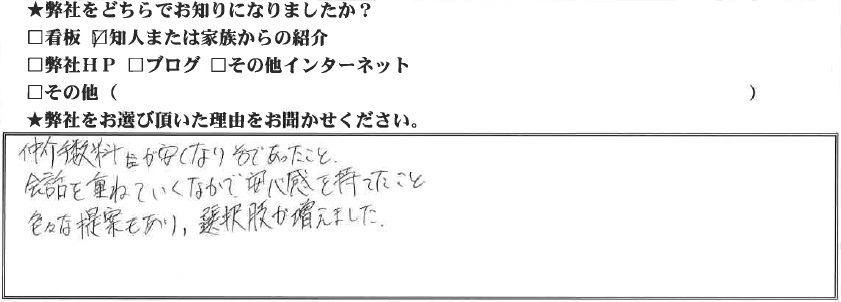 ★弊社をどちらでお知りになりましたか？
□看板 ☑知人または家族からの紹介
□弊社ＨＰ □ブログ □その他インターネット
□その他（　　　　　　　　　　）
★弊社をお選び頂いた理由をお聞かせください。
仲介手数料が安くなりそうであったこと、
会話を重ねていくなかで安心感を持てたこと
色々な提案もあり、選択肢が増えました。